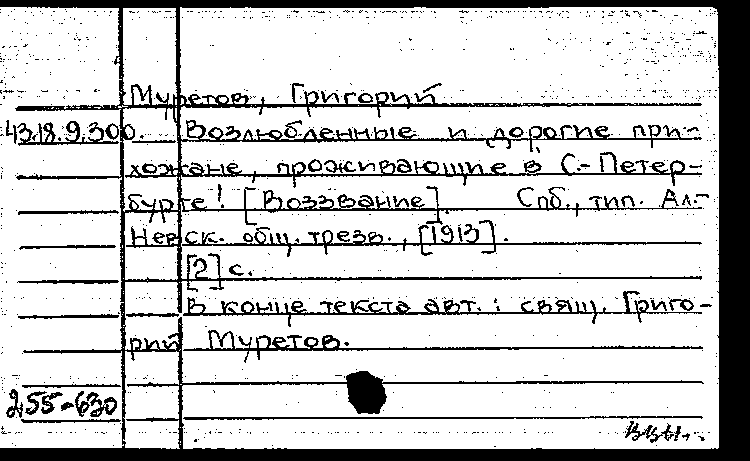 Муретов, Григорий
43.18.9.300. Возлюбленные и дорогие при-
хожане, проживающие в С.-Петер-
бурге! [Воззвание]. Спб., тип. Ал.-
Невск. общ. трезв., [1913].
[2] с.
В конце текста авт.: свящ. Григо-
рий Муретов.
255-630